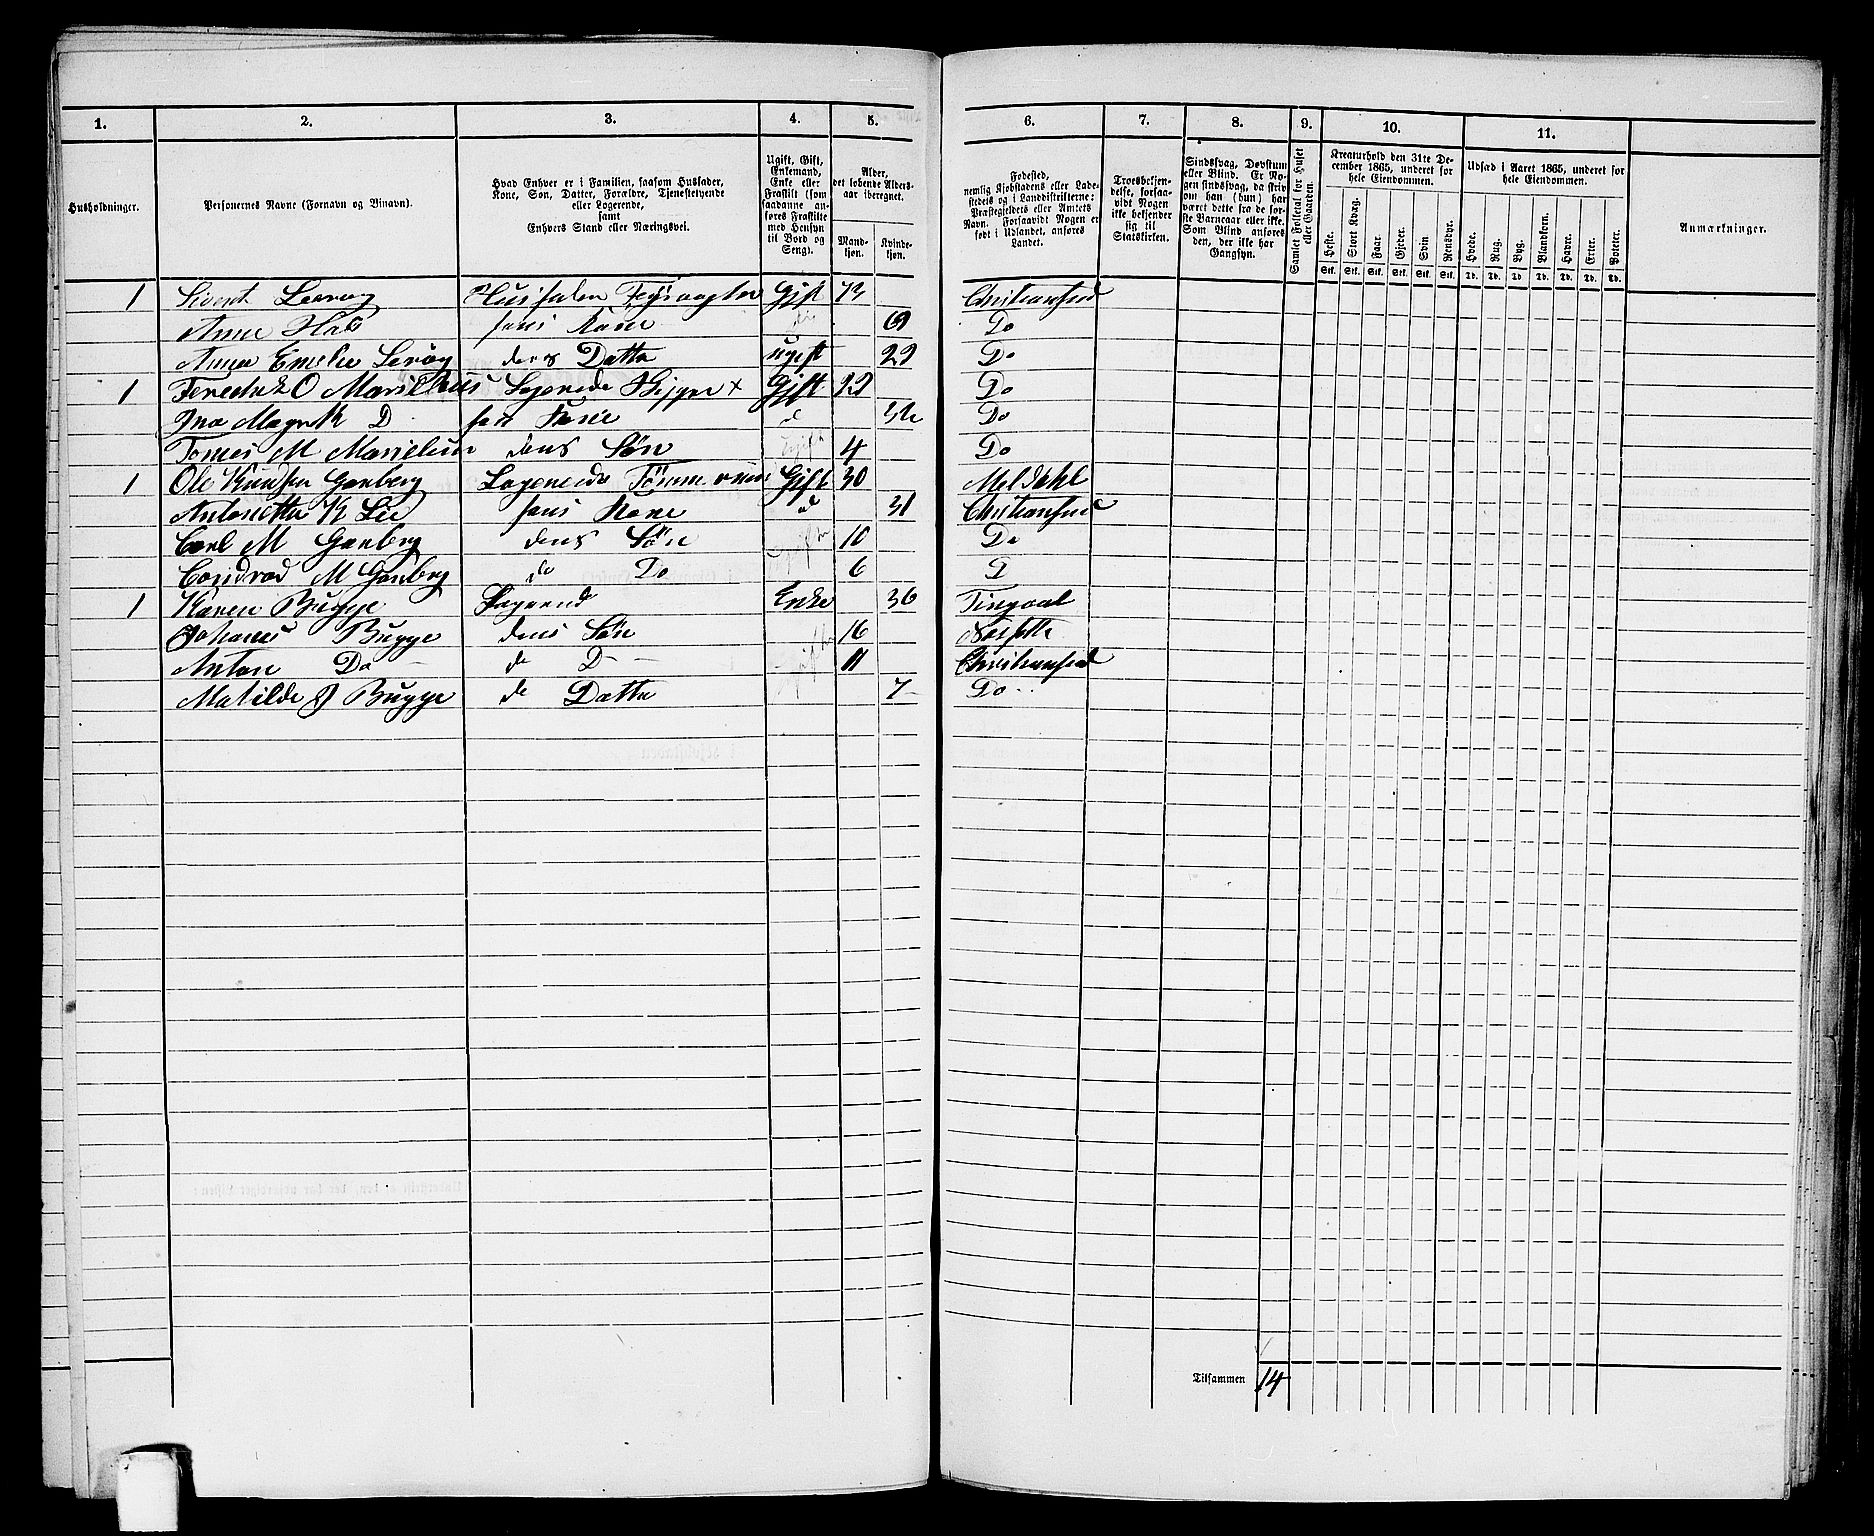 1. 2. 3. 4. 5. 6. 7. 8. 9. 10. 11.
Husholdninger.
Personernes Navne (Fornavn og Binavn).
Hvad Enhver er i Familien, saasom Husfader,
Kone, Søn, Datter, Forældre, Tjenestetyende
eller Logerende,
samt
Enhvers Stand eller Næringsvei.
Ugift, Gift,
Enkemand,
Enke eller
Fraskilt (som
saadanne an-
føres Fraskilte
med Hensyn
til Bord og
Seng).
Alder,
det løbende Alders-
aar iberegnet.
Mand-
kjøn.
Kvinde-
kjøn.
Fødested,
nemlig Kjøbstadens eller Lade-
stedets og i Landdistrikterne:
Præstegjeldets eller Amtets
Navn. Forsaavidt Nogen er
født i Udlandet, anføres
Landet.
Troesbekjen-
delse, forsaa-
vidt Nogen
ikke bekjender
sig til
Statskirken.
Sindssvag, Døvstum
eller Blind. Er No-
gen sindssvag, da skriv
om han (hun) har
været dette fra de før-
ste Barneaar eller ikke.
Som Blind anføres
den, der ikke har
Gangsyn.
Samlet Folketal for Huset
eller Gaarden.
Kreaturhold den 31te De-
cember 1865, underet for
hele Eiendommen.
Heste. Stort Kvæg. Faar. Gjeder. Svin. Rensdyr.
Stk. Stk. Stk. Stk. Stk. Stk.
Udsæd i Aaret 1865, underet for
hele Eiendommen.
Hvede. Rug. Byg. Blandkorn. Havre. Erter. Poteter.
Td. Td. Td. Td. Td. Td. Td.
Anmærkninger.
1 Sivert Gift 73 Christiansund
Anna hans Kone 69 Do
Anna Emelie deres Datter ugift 29 Do
1 O Logerende Gift 29 Do
D hans Kone Do
M deres Søn 4 Do
1 Ole Knudsen Logerende Gift 30 Meldahl
Antonetta K Lie hans Kone 31 Christiansund
Carl M deres Søn 10 Do
M do Do 6 D
1 Karen Bugge Logerend Enke 36 Tingvol
Johanes Bugge dens Søn 16
Anton Do do D 11 Christiansund
Matilde J Bugge do Datter 7 Do
Tilsammen 14